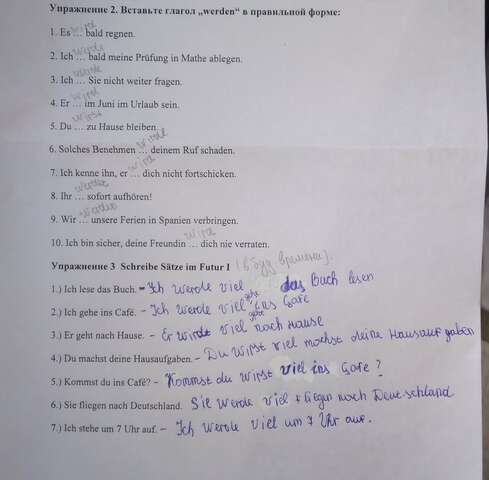 Упражнение 2. Вставьте глагол „werden“ в правильной форме:
wird
1. Es … bald regnen.
werde
2. Ich … bald meine Prüfung in Mathe ablegen.
werde
3. Ich … Sie nicht weiter fragen.
wird
4. Er … im Juni im Urlaub sein.
wirst
5. Du … zu Hause bleiben.
6. Solches Benehmen … deinem Ruf schaden.
wird
7. Ich kenne ihn, er … dich nicht fortschicken.
werdet
8. Ihr … sofort aufhören!
werden
9. Wir … unsere Ferien in Spanien verbringen.
wird
10. Ich bin sicher, deine Freundin … dich nie verraten.
Упражнение 3 Schreibe Sätze im Futur I (в буд времени).
1.) Ich lese das Buch. – Ich werde viel das Buch lesen
2.) Ich gehe ins Café. – Ich werde viel gehe ins Cafe
3.) Er geht nach Hause. – Er wird viel noch Hause
4.) Du machst deine Hausaufgaben. – Du wirst viel machst deine Hausaufgaben
5.) Kommst du ins Café? – Kommst du wirst viel ins Cafe?
6.) Sie fliegen nach Deutschland. Sie werde viel fliegen noch Deutschland
7.) Ich stehe um 7 Uhr auf. – Ich werde viel um 7 Uhr auf.